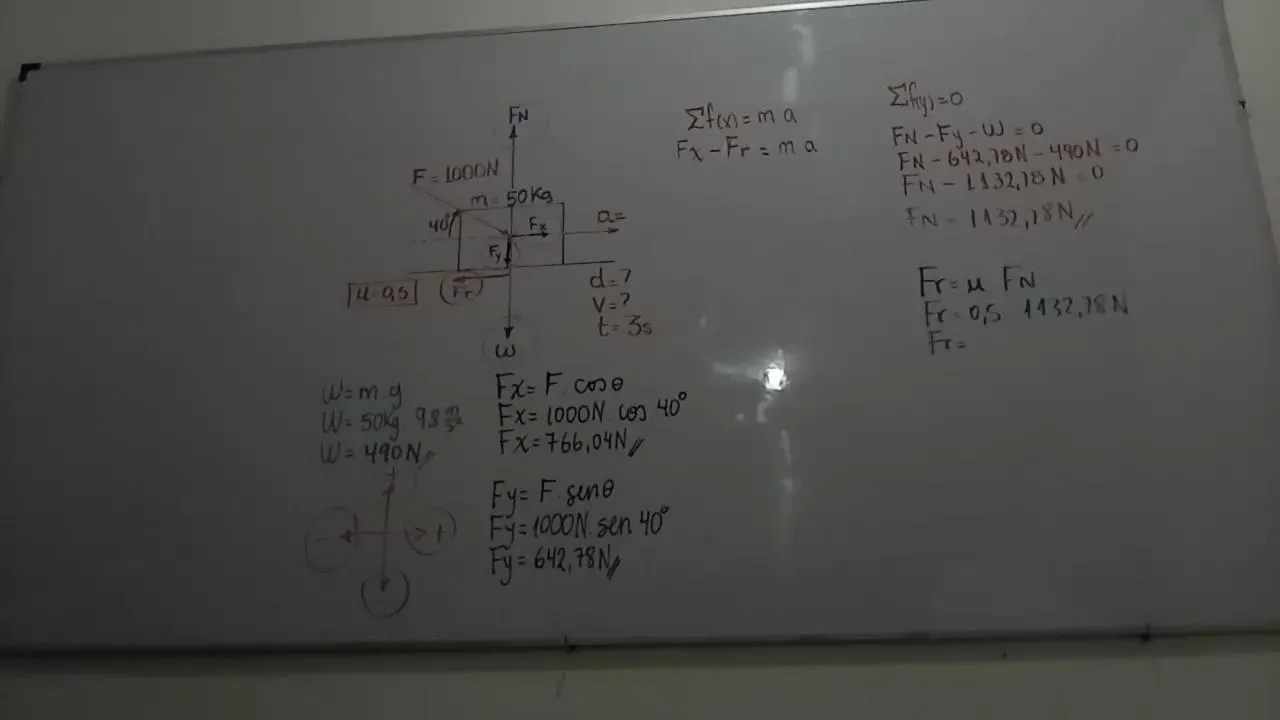 FN
F = 1000N
m = 50Kg
40°
Fx
a=
Fy
μ=0,5
(Fr)
d=?
V=?
t=3s
W
W=m g
W=50Kg 9,8 m/s²
W=490N //
Fx=F. cosθ
Fx=1000N. cos 40°
Fx=766,04N //
Fy=F. senθ
Fy=1000N. sen 40°
Fy=642,78N //
-
+
Σf(x)=m a
Fx-Fr=m a
Σf(y)=0
FN-Fy-W=0
FN-642,78N-490N=0
FN-1132,78N=0
FN=1132,78N //
Fr=μ FN
Fr=0,5 1132,78N
Fr=